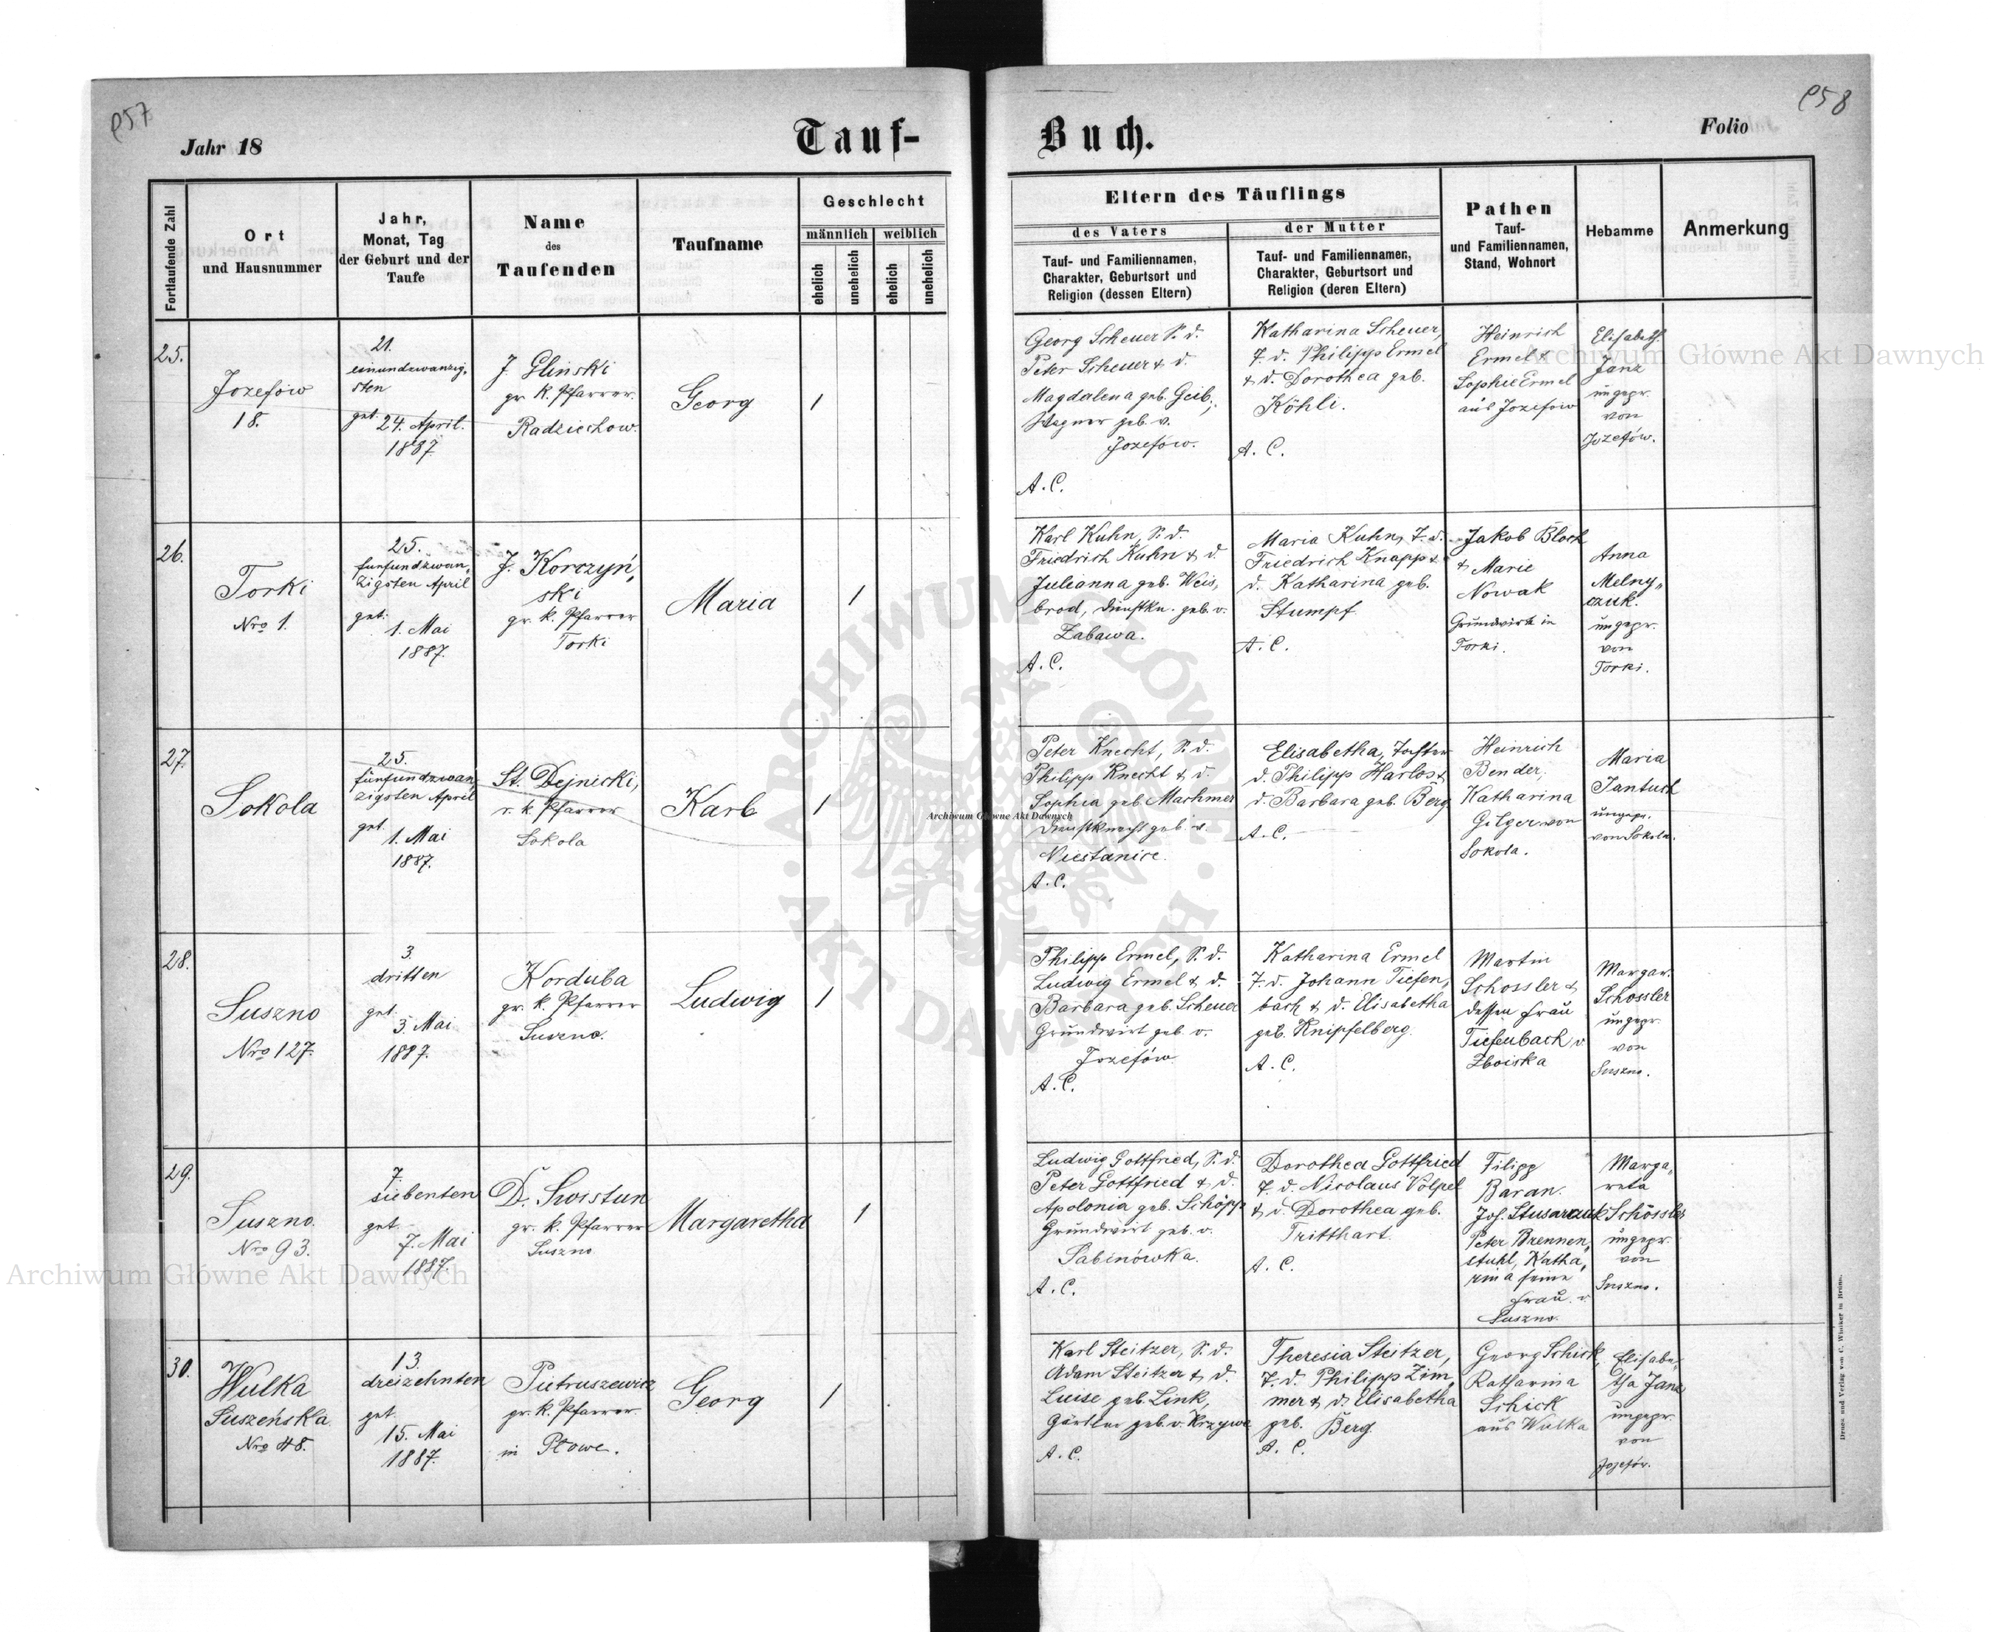 957
Jahr 18
Tauf-
Fortlaufende Zahl
Ort
und Hausnummer
Jahr,
Monat, Tag
der Geburt und der
Taufe
Name
des
Taufenden
Taufname
Geschlecht
männlich
weiblich
ehelich
unehelich
ehelich
unehelich
25.
Jozefów
18.
21.
einundzwanzig,
sten
get. 24. April.
1887.
J. Glinski
gr. k. Pfarrer.
Radziechow.
Georg
1
26.
Torki
Nro 1.
25.
fünfundzwan,
zigsten April
get.
1. Mai
1887.
J. Korczyń,
ski
gr. k. Pfarrer
Torki
Maria
1
27.
Sokola
25.
fünfundzwan,
zigsten April
get.
1. Mai
1887.
St. Dejnicki,
r. k. Pfarrer
Sokola
Karl
1
28.
Suszno
Nro 127.
3.
dritten
get.
5 Mai
1887.
Korduba
gr. k. Pfarrer
Suszno.
Ludwig
1
29.
Suszno.
Nro 93.
7.
siebenten
get.
7. Mai
1887.
D. Swistun
gr. k. Pfarrer
Suszno
Margaretha
1
30.
Wulka
Suszeńska.
Nro 48.
13.
dreizehnten
get.
15. Mai
1887.
Pietruszewicz
gr. k. Pfarrer.
in Płowe.
Georg
1
958
Buch.
Folio
Eltern des Täuflings
des Vaters
der Mutter
Tauf- und Familiennamen,
Charakter, Geburtsort und
Religion (dessen Eltern)
Tauf- und Familiennamen,
Charakter, Geburtsort und
Religion (deren Eltern)
Pathen
Tauf-
und Familiennamen,
Stand, Wohnort
Hebamme
Anmerkung
Georg Scheuer S. d.
Peter Scheuer & d.
Magdalena geb. Geib,
Wagner geb. v.
Jozefów.
A. C.
Katharina Scheuer,
T. d. Philipp Ermel
& d. Dorothea geb.
Köhli.
A. C.
Heinrich
Ermel &
Sophie Ermel
aus Jozefow
Elisabeth.
Janz
ungepr.
von
Jozefów.
Karl Kuhn, S. d.
Friedrich Kuhn & d.
Julianna geb. Weis,
brod, Dienstkn. geb. v.
Zabawa.
A. C.
Maria Kuhn, T. d.
Friedrich Knapp &
d. Katharina geb.
Stumpf
A. C.
Jakob Bloch
& Marie
Nowak
Grundwirth in
Torki.
Anna
Melny,
czuk.
ungepr.
von
Torki.
Peter Knecht, S. d.
Philipp Knecht & d.
Sophia geb. Machmer
Dienstknecht geb. v.
Niestanice.
A. C.
Elisabetha, Tochter
d. Philipp Harlos &
d. Barbara geb. Berg
A. C.
Heinrich
Bender,
Katharina
Gilger von
Sokola.
Maria
Jantuch
ungepr.
von Sokola.
Philipp Ermel, S. d.
Ludwig Ermel & d.
Barbara geb. Scheuer
Grundwirt geb. v.
Jozefów
A. C.
Katharina Ermel
T. d. Johann Tiefen,
bach & d. Elisabetha
geb. Knipfelberg.
A. C.
Martin
Schossler &
dessen Frau
Tiefenbach v.
Zboiska
Margar.
Schossler
ungepr.
von
Suszno.
Ludwig Gottfried, S. d.
Peter Gottfried & d.
Apolonia geb. Schöpp
Grundwirt geb. v.
Sabinówka.
A. C.
Dorothea Gottfried
T. d. Nicolaus Volpel
& d. Dorothea geb.
Tritthart.
A. C.
Filipp
Baran.
Jos. Slusarczuk
Peter Brennen,
stuhl, Katha,
rina seine
Frau. v.
Suszno.
Marga,
reta
Schössler
ungepr.
von
Suszno.
Karl Steitzer, S. d.
Adam Steitzer & d.
Luise geb. Link,
Gärtner geb. v. Krzywe
A. C.
Theresia Steitzer,
T. d. Philipp Zim,
mer & d. Elisabetha
geb. Berg
A. C.
Georg Schick,
Katharina
Schick
aus Wulka
Elisabe,
tha Janz
ungepr.
von
Jozefów.
Druck und Verlag von C. Winiker in Brünn.
Archiwum Główne Akt Dawnych
Archiwum Główne Akt Dawnych
Archiwum Główne Akt Dawnych
ARCHIWUM GŁÓWNE AKT DAWNYCH